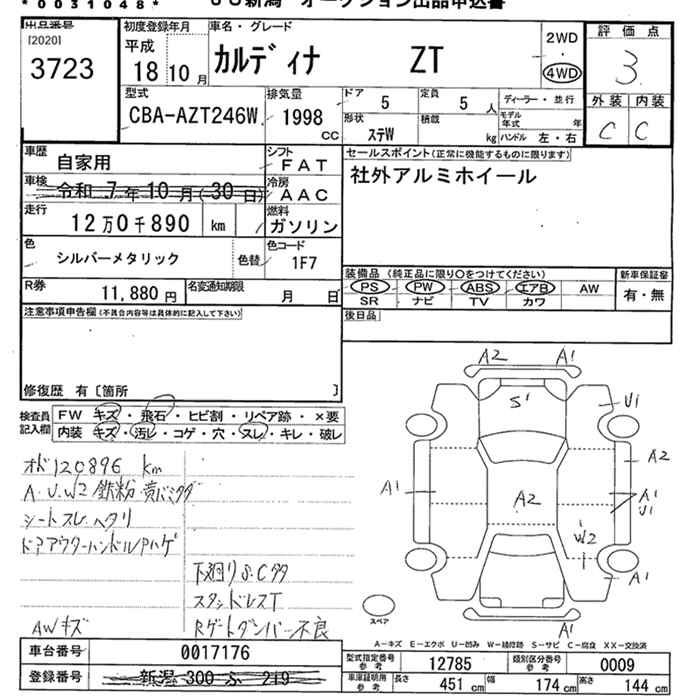 *0031048*
JU新潟 オークション出品申込書
出品番号
[2020]
3723
初度登録年月
平成
18 10 月
車名・グレード
カルディナ ZT
2WD
4WD
評価点
3
外装 内装
C C
型式
CBA-AZT246W
排気量
1998 CC
ドア 5
定員 5 人
形状 ステW
積載 kg
ディーラー・並行
モデル年式 年
ハンドル 左・右
車歴
自家用
シフト
FAT
車検
令和 7年 10月(30日)
冷房
AAC
走行
12万0千890 km
燃料
ガソリン
色
シルバーメタリック
色替
色コード
1F7
R券
11,880 円
名変通知期限
月 日
セールスポイント(正常に機能するものに限ります)
社外アルミホイール
装備品 (純正品に限り○をつけてください)
PS PW ABS エアB AW
SR ナビ TV カワ
新車保証書
有・無
後日品
注意事項申告欄(不具合内容等は具体的に記入して下さい)
修復歴 有〔箇所 〕
検査員記入欄
FW キズ・飛石・ヒビ割・リペア跡・×要
内装 キズ・汚レ・コゲ・穴・スレ・キレ・破レ
オド120896 km
A.U.W2 鉄粉.黄バミタダ
シートスレ.ヘタリ
ドアアウターハンドルPハゲ
下廻りS.Cタタ
スタッドレスT
AWキズ
Rゲートダンパー不良
A2 A1
S1
U1
A2
A1
A2
A1
U1
W2
A1
A1
スペア
A-キズ E-エクボ U-凹み W-補修跡 S-サビ C-腐食 XX-交換済
車台番号
0017176
登録番号
新潟 300 ふ 219
型式指定番号 参考 12785
類別区分番号 参考 0009
車庫証明用 参考 長さ 451 cm 幅 174 cm 高さ 144 cm